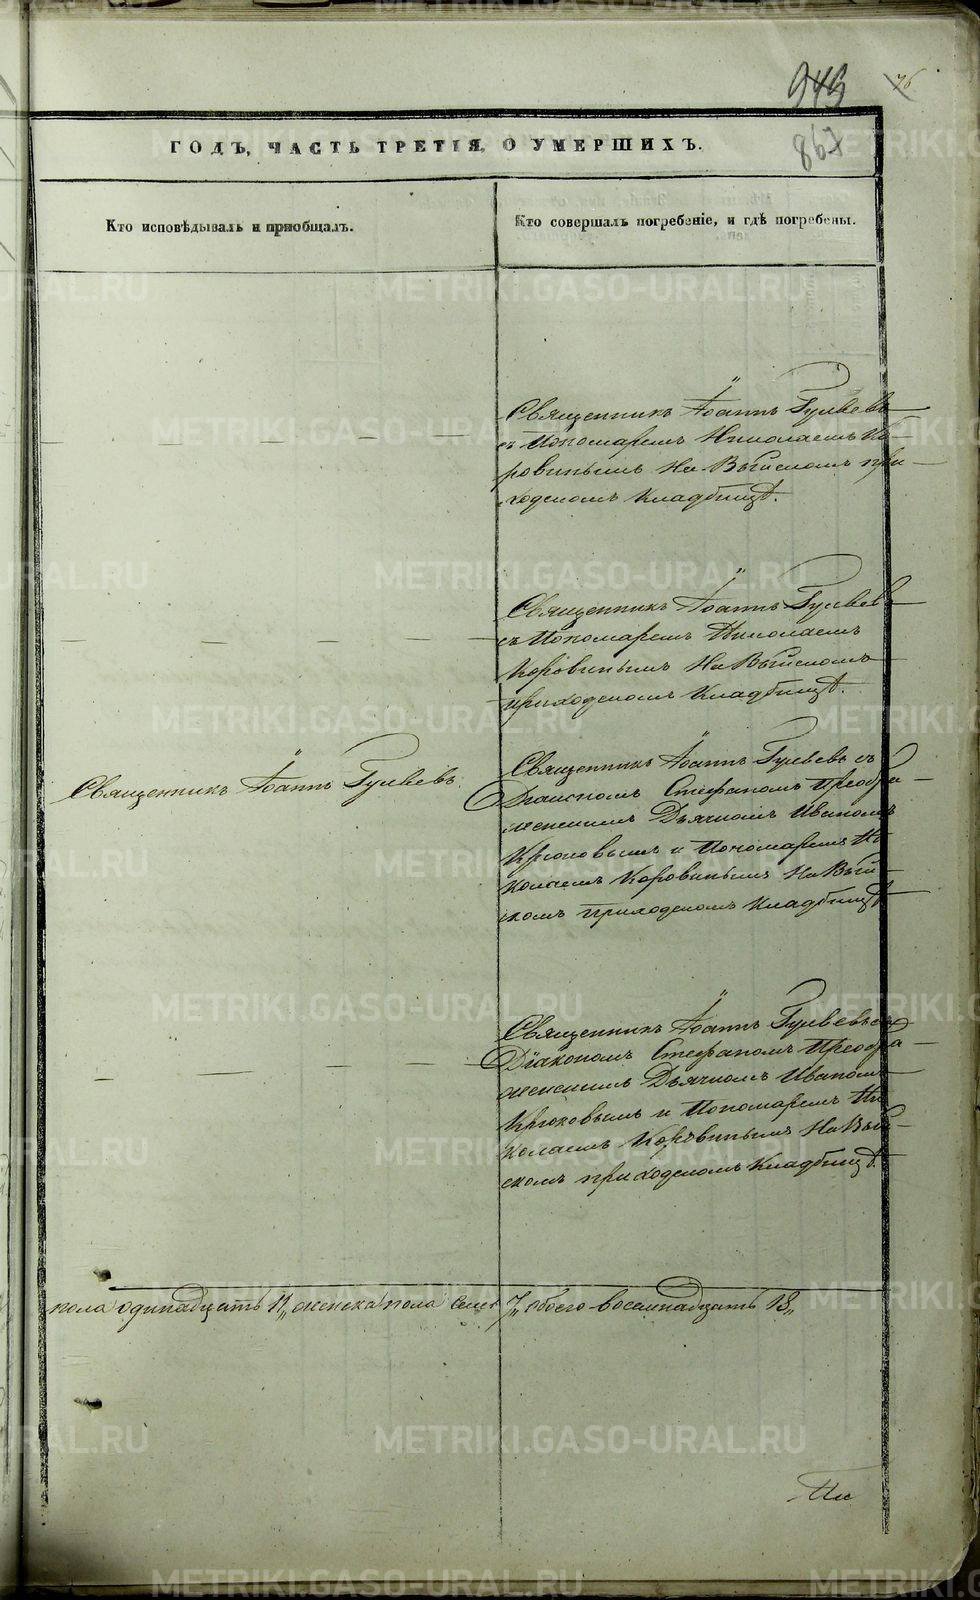 949
76
867
ГОДЪ, ЧАСТЬ ТРЕТІЯ, О УМЕРШИХЪ.
Кто исповѣдывалъ и пріобщалъ.
Кто совершалъ погребеніе, и гдѣ погребены.
Священникъ Іоаннъ Гуляевъ
съ Пономаремъ Николаемъ Ко-
ровинымъ На Выйскомъ при-
ходскомъ Кладбищѣ.
Священникъ Іоаннъ Гуляевъ
съ Пономаремъ Николаемъ
Коровинымъ На Выйскомъ
приходскомъ Кладбищѣ.
Священникъ Іоаннъ Гуляевъ
Священникъ Іоаннъ Гуляевъ съ
Діакономъ Стефаномъ Преобра-
женскимъ Дьячкомъ Иваномъ
Крюковымъ и Пономаремъ Ни-
колаемъ Коровинымъ На Вый-
скомъ приходскомъ Кладбищѣ
Священникъ Іоаннъ Гуляевъ съ
Діакономъ Стефаномъ Преобра-
женскимъ Дьячкомъ Иваномъ
Крюковымъ и Пономаремъ Ни-
колаемъ Коровинымъ На Вый-
скомъ приходскомъ Кладбищѣ.
пола одинадцать 11,, женска пола семь 7,, обоего восемнадцать 18,,
METRIKI.GASO-URAL.RU